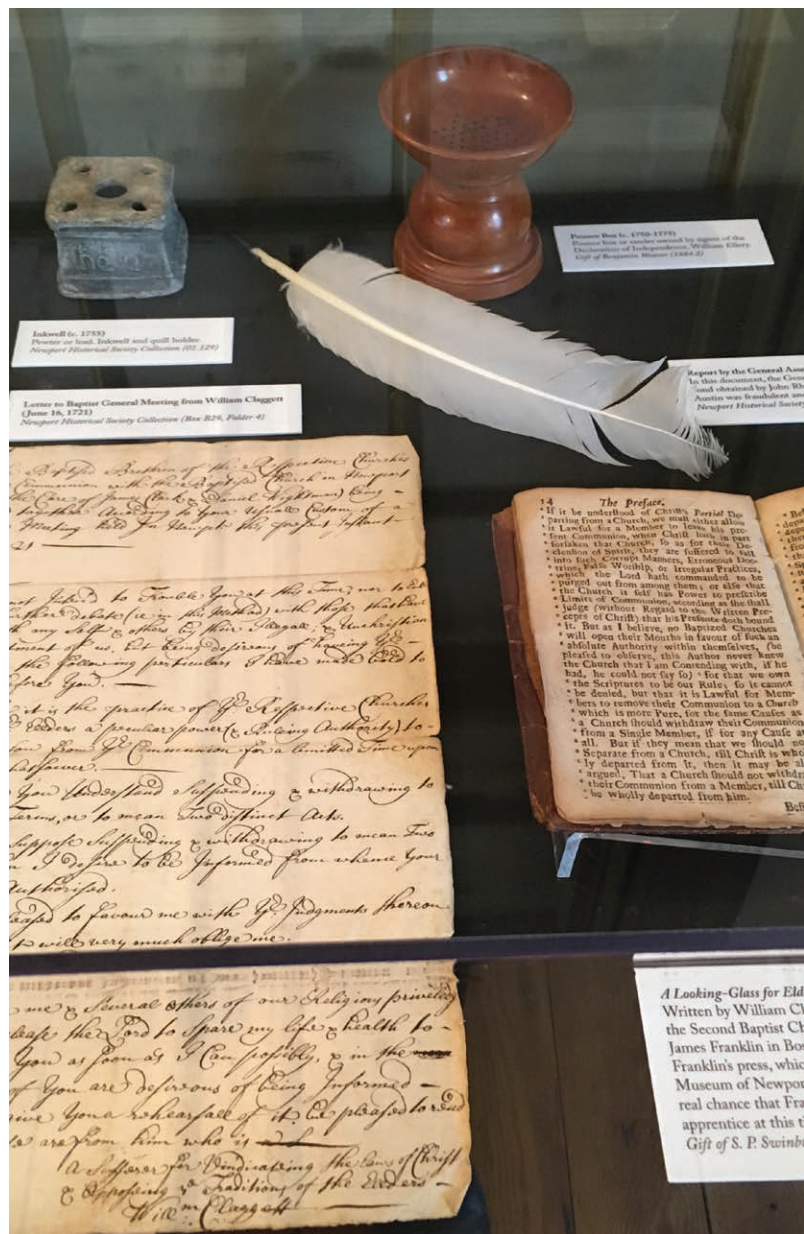 Pounce Box (c. 1750-1775)
Pounce box or sander owned by signer of the
Declaration of Independence, William Ellery.
Gift of Benjamin Weaver (1884.2)
Inkwell (c. 1755)
Pewter or lead. Inkwell and quill holder.
Newport Historical Society Collection (01.129)
Letter to Baptist General Meeting from William Claggett
(June 16, 1721)
Newport Historical Society Collection (Box B29, Folder 4)
Report by the General Ass
In this document, the Gen
obtained by John Rh
Austin was fraudulent an
Newport Historical Society
Baptised Brethren of the Respective Churches
Communion with the Baptised Church in Newport
the Care of James Clark & Daniel Wightman) being
together According to Your Usuall Custom, of a
Meeting held In Newpt this present Instant
to Trouble You at this Time, nor to Ent
debate (ie in this Method) with those that have
my Self & others by their Illegall & Unchristian
tment of us, but being desirous of having Ye
the following particulars I have made bold to
fore You.
it is the practice of Ye Respective Churches
Elders a peculiar power (& Ruleing Authority) to
from Ye Communion for a Limitted Time upon
You Understand Suspending & withdrawing to
Terms, or to mean Two distinct Acts.
Suppose Suspending & withdrawing to mean Two
I desire to be Informed from whence Your
Authorised.
leased to favour me with Ye Judgments thereon
it will very much oblige me.
me & Several others of our Religious priviledg
lease the Lord to Spare my life & health to
You as Soon as I Can possibly, & in the
of You are desireous of being Informed
ive You a rehearsall of it. be pleased to read
are from him who is
a Sufferer for Vindicating the Laws of Christ
& Opposing ye Traditions of the Elders
Willm Claggett
14 The Preface.
"If it be understood of Christ's Partial De-
"parting from a Church, we must either allow
"it Lawful for a Member to leave his pre-
"sent Communion, when Christ hath in part
"forsaken that Church, so as for their De-
"clension of Spirit, they are suffered to fall
"into such Corrupt Manners, Erroneous Doc-
"trine, False Worship, or Irregular Practices,
"which the Lord hath commanded to be
"purged out from among them; or else that
"the Church it self has Power to prescribe
"Limits of Communion, according as she shall
"judge (without Regard to the Written Pre-
"cepts of Christ) that his Presence doth bound
"it. But as I believe, no Baptized Churches
"will open their Mouths in favour of such an
"absolute Authority within themselves, (be
"pleased to observe, this Author never knew
"the Church that I am Contending with, if he
"had, he could not say so) "for that we own
"the Scriptures to be our Rule; so it cannot
"be denied, but that it is Lawful for Mem-
"bers to remove their Communion to a Church
"which is more Pure, for the same Causes as
"a Church should withdraw their Communion
"from a Single Member, if for any Cause at
"all. But if they mean that we should no
"Separate from a Church, till Christ is who
"ly departed from it, then it may be al
"argued, That a Church should not withdr
"their Communion from a Member, till Ch
"be wholly departed from him.
A Looking-Glass for Eld
Written by William Cl
the Second Baptist Ch
James Franklin in Bos
Franklin's press, whic
Museum of Newpor
real chance that Fra
apprentice at this t
Gift of S. P. Swinb